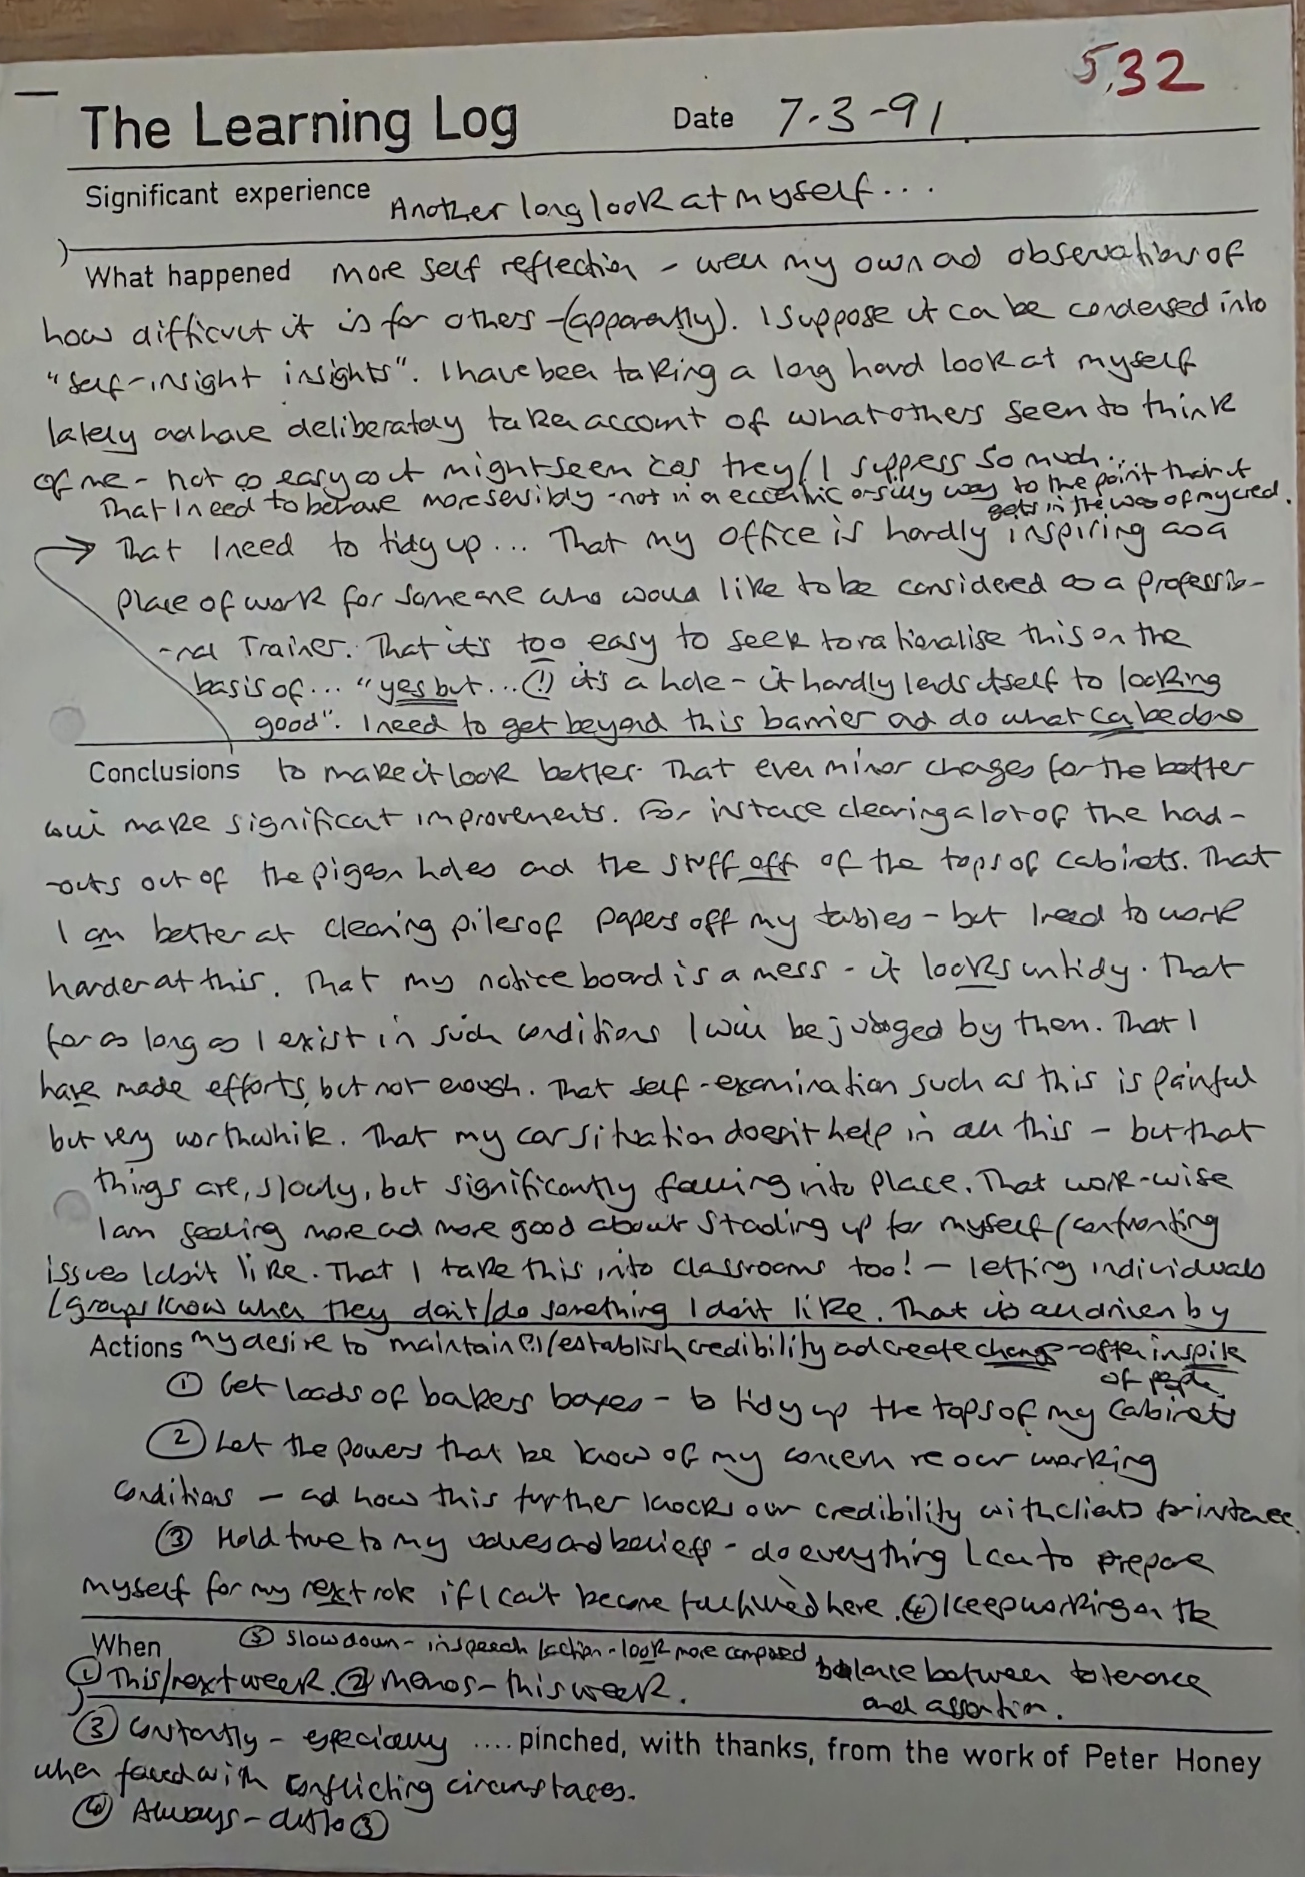 5,32
The Learning Log Date 7-3-91
Significant experience Another long look at myself...
What happened more self reflection - well my own ad observations of
how difficult it is for others - (apparently). I suppose it ca be condensed into
"self-insight insights". I have been taking a long hard look at myself
lately ad have deliberately taken account of what others seem to think
of me - not so easy as it might seem cos they/I suppress so much...
That I need to behave more sensibly - not in an eccentric or silly way to the point that it
gets in the way of my cred.
→ That I need to tidy up... That my office is hardly inspiring as a
place of work for someone who would like to be considered as a professio-
-nal Trainer. That it's too easy to seek to rationalise this on the
basis of... "yes but...(!) it's a hole - it hardly lends itself to looking
good". I need to get beyond this barrier ad do what ca be done
Conclusions to make it look better. That even minor chages for the better
will make significat improvements. For instace clearing a lot of the had-
-outs out of the pigeon holes and the stuff off of the tops of cabinets. That
I am better at clearing piles of papers off my tables - but I need to work
harder at this. That my notice board is a mess - it looks untidy. That
for as long as I exist in such conditions I will be judged by them. That I
have made efforts, but not enough. That self-examination such as this is painful
but very worthwhile. That my car situation doesn't help in all this - but that
things are, slowly, but significantly falling into place. That work-wise
I am feeling more ad more good about stading up for myself/confronting
issues I don't like. That I take this into classrooms too! - letting individuals
/groups know when they don't/do something I don't like. That it's all driven by
Actions my desire to maintain(?)/establish credibility ad create change - often inspite
of people.
① Get loads of bakers boxes - to tidy up the tops of my cabinets
② Let the powers that be know of my concern re our working
conditions - ad how this further knocks our credibility with clients for instance.
③ Hold true to my values and beliefs - do everything I can to prepare
myself for my next role if I can't become fulfilled here. ④ Keep working on the
balance between tolerence
and assertion.
When ⑤ Slow down - in speech/action - look more composed
① This/next week. ② Memos - this week.
③ Constantly - especially .... pinched, with thanks, from the work of Peter Honey
when faced with conflicting circumstaces.
④ Always - ditto ③